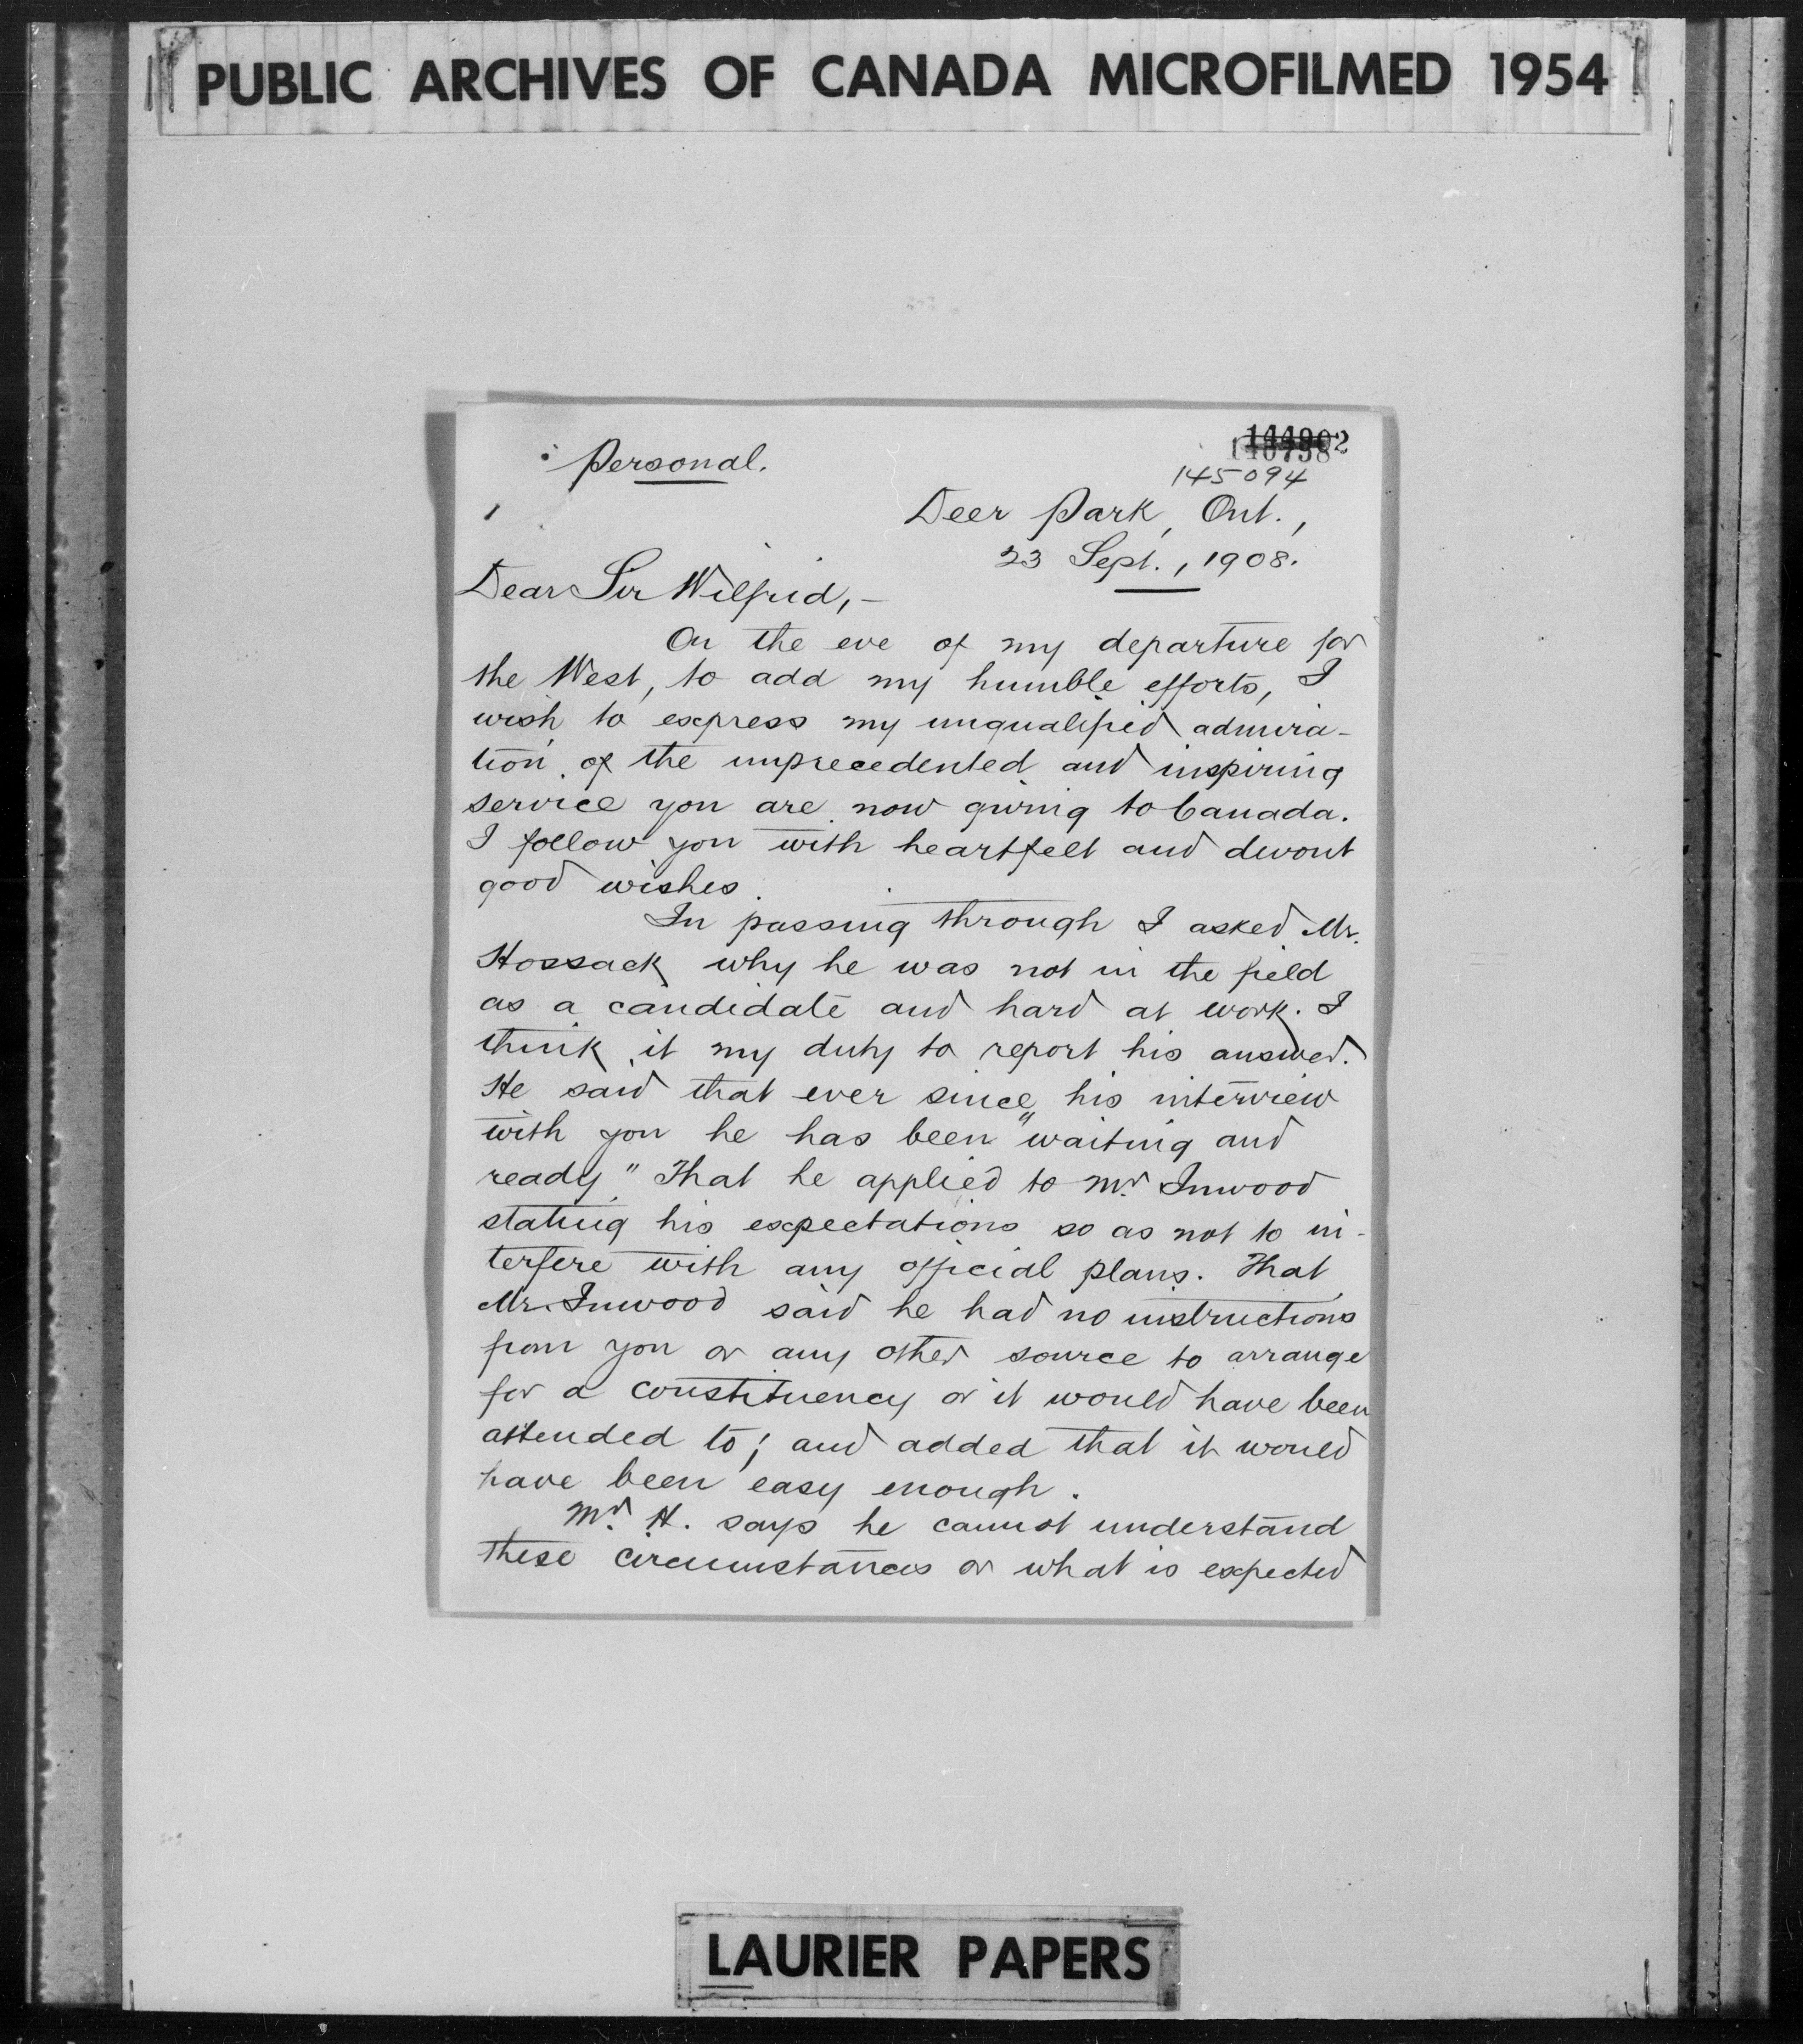 PUBLIC ARCHIVES OF CANADA MICROFILMED 1954
Personal.
145094
Deer Park, Ont.,
23 Sept., 1908.
Dear Sir Wilfrid, -
On the eve of my departure for
the West, to add my humble efforts, I
wish to express my unqualified admira-
tion of the unprecedented and inspiring
service you are now giving to Canada.
I follow you with heartfelt and devout
good wishes.
In passing through I asked Mr.
Hossack why he was not in the field
as a candidate and hard at work. I
think it my duty to report his answer.
He said that ever since his interview
with you he has been "waiting and
ready." That he applied to Mr. Inwood
stating his expectations so as not to in-
terfere with any official plans. That
Mr. Inwood said he had no instructions
from you or any other source to arrange
for a constituency or it would have been
attended to; and added that it would
have been easy enough.
Mr. H. says he cannot understand
these circumstances or what is expected
LAURIER PAPERS